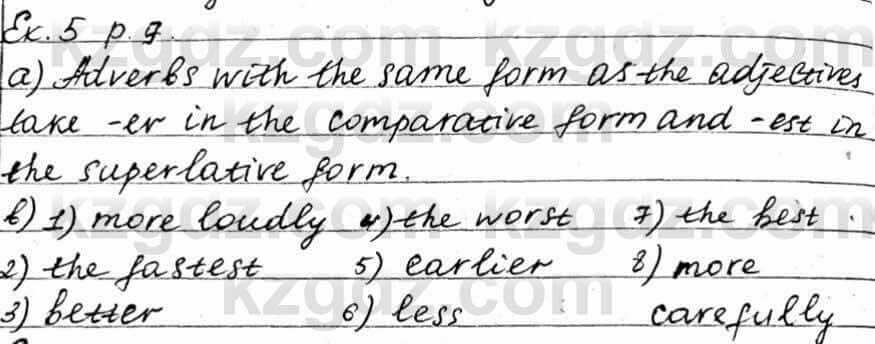 Ex. 5 p. 9.
a) Adverbs with the same form as the adjectives
take -er in the comparative form and -est in
the superlative form.
b) 1) more loudly 4) the worst 7) the best.
2) the fastest 5) earlier 8) more
3) better 6) less carefully
kzgdz.com kzgdz.com kzgdz.com
kzgdz.com kzgdz.com